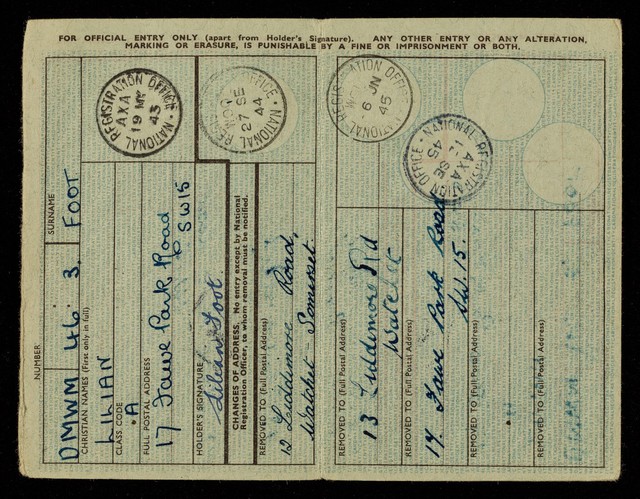 FOR OFFICIAL ENTRY ONLY (apart from Holder's Signature). ANY OTHER ENTRY OR ANY ALTERATION,
MARKING OR ERASURE, IS PUNISHABLE BY A FINE OR IMPRISONMENT OR BOTH.
NUMBER
SURNAME
DMWM 46 3. FOOT
CHRISTIAN NAMES (First only in full)
LILIAN
CLASS CODE
A
FULL POSTAL ADDRESS
17 Fawe Park Road
SW15
NATIONAL REGISTRATION OFFICE
AXA
19 MY
43
HOLDER'S SIGNATURE
Lilian Foot
CHANGES OF ADDRESS. No entry except by National
Registration Officer, to whom removal must be notified.
REMOVED TO (Full Postal Address)
12 Liddimore Road,
Watchet - Somerset.
NATIONAL REGISTRATION OFFICE
27 SE
44
REMOVED TO (Full Postal Address)
13 Liddimore Rd
Watchet
NATIONAL REGISTRATION OFFICE
6 JN
45
REMOVED TO (Full Postal Address)
17. Fawe Park Road
S.W. 15.
NATIONAL REGISTRATION OFFICE
AXA
SE
45
REMOVED TO (Full Postal Address)
REMOVED TO (Full Postal Address)